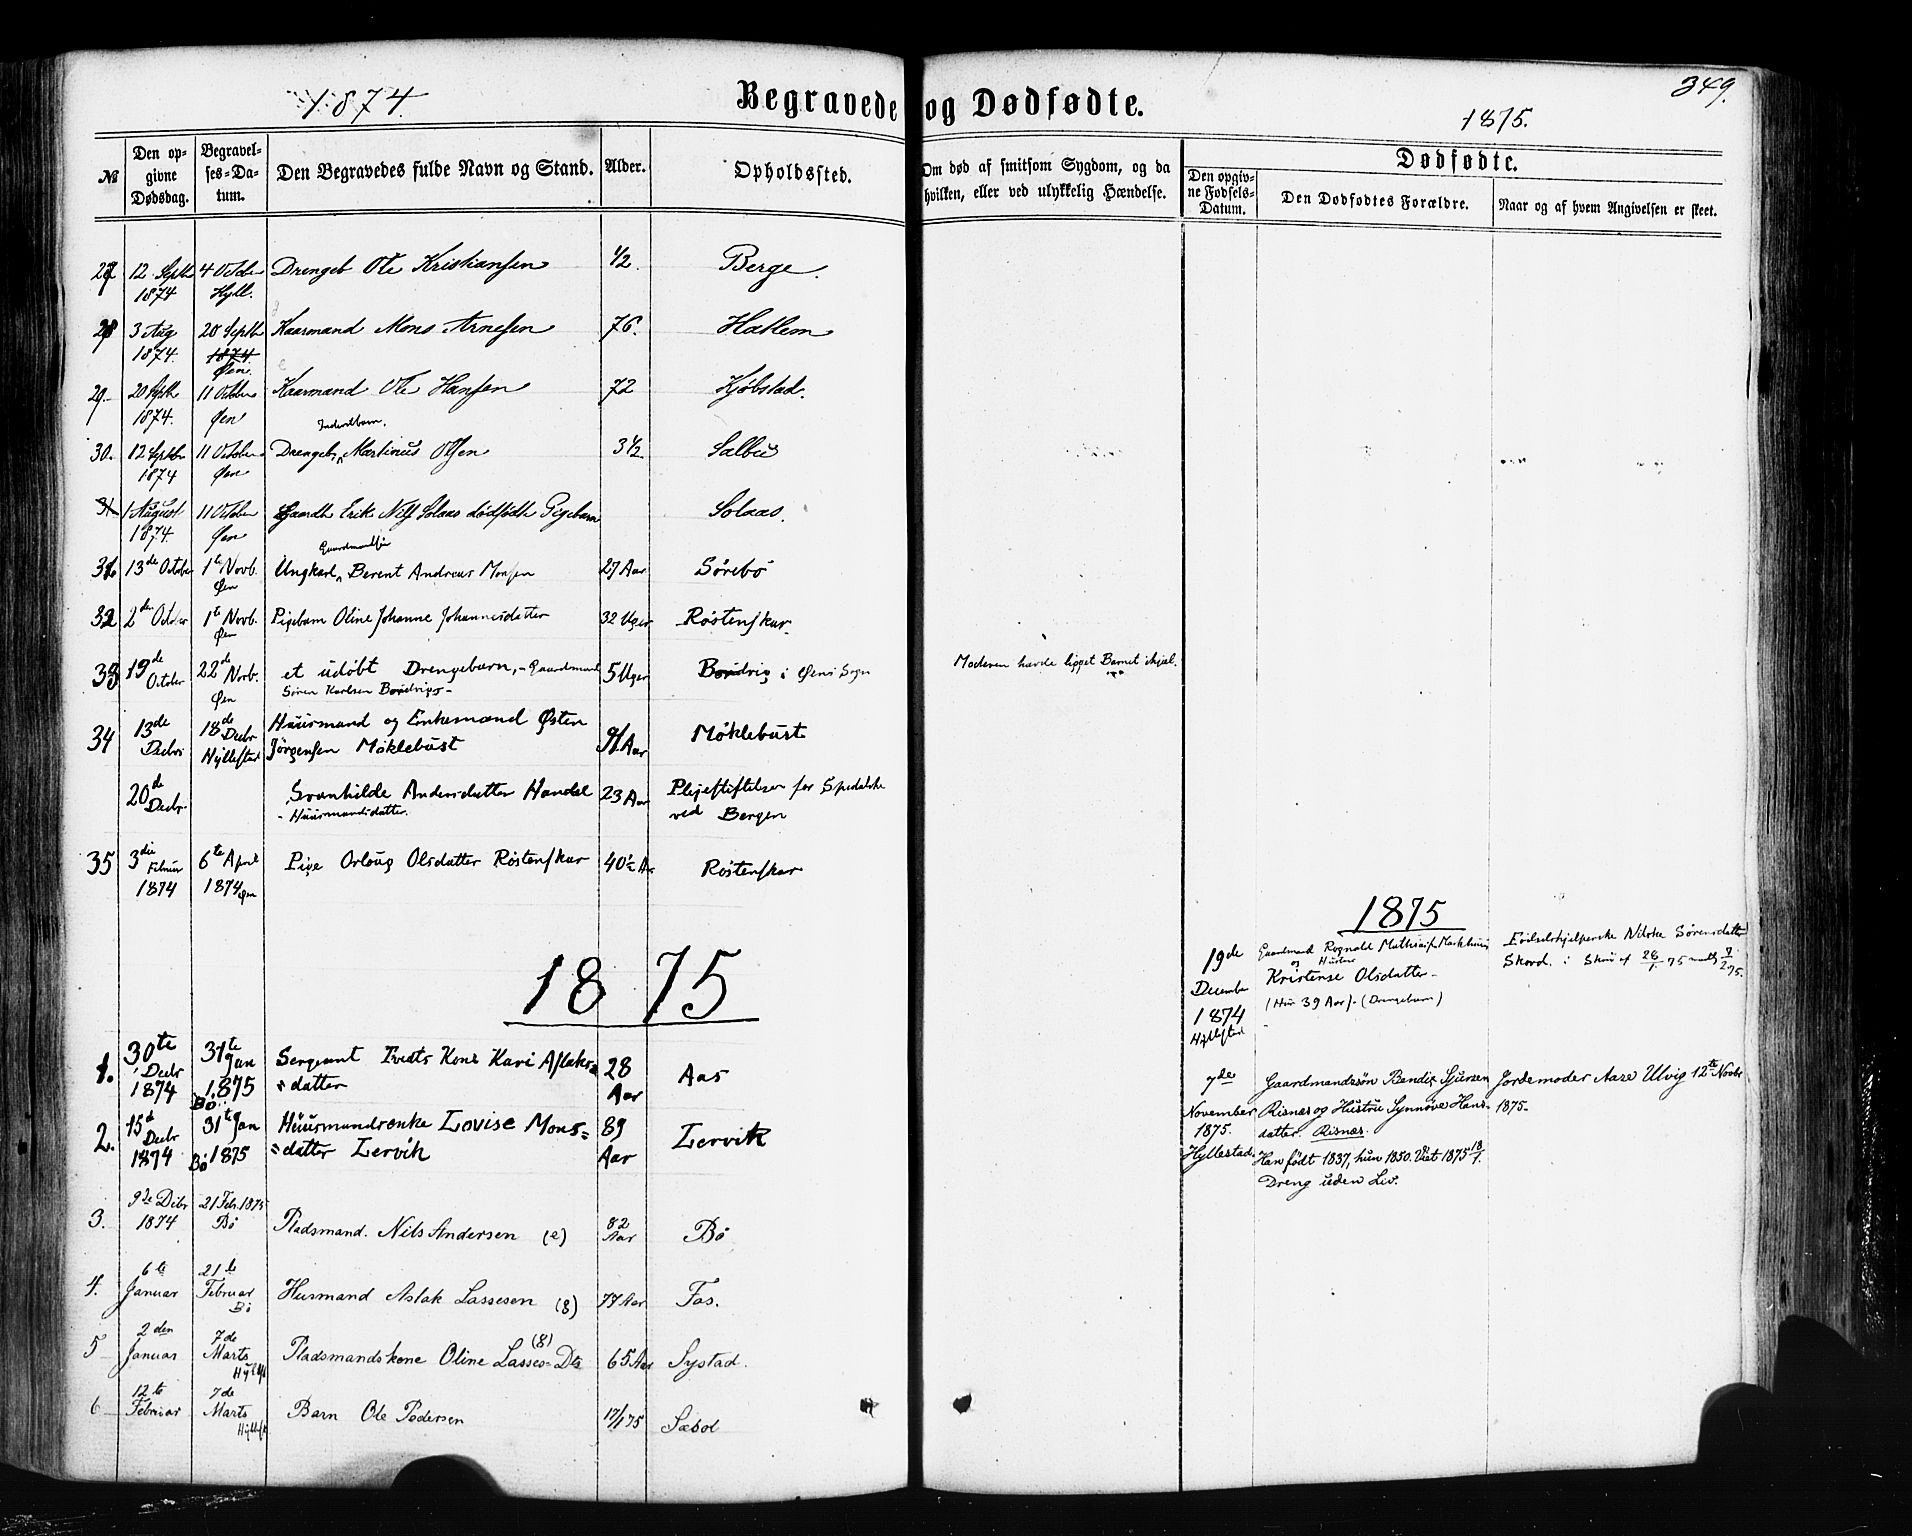 1874.
Begravede og Dødfødte.
1875.
349.
No
Den opgivne Dødsdag.
Begravelses-Datum.
Den Begravedes fulde Navn og Stand.
Alder.
Opholdssted.
Om død af smitsom Sygdom, og da hvilken, eller ved ulykkelig Hændelse.
Dødfødte.
Den opgivne Fødsels-Datum.
Den Dødfødtes Forældre.
Naar og af hvem Angivelsen er skeet.
27 12 Septbr 4 Octbr Drengeb Ole Kristiansen 1/2. Berge.
1874 Hyll.
28 3 Aug 20 Septbr Kaarmand Mons Arnesen 76. Hatlem
1874. 1874. Øen.
29. 20 Septbr 11 October Kaarmand Ole Hansen 72 Kjøbstad.
1874. Øen
Inderstbarn.
30. 12 Septbr 11 October Drengeb. Martinus Olsen 3 1/2 Salbu
1874 Øen
31 1 August 11 October Gaardbr Erik Nils Solaas dødfødte Pigebarn Solaas.
1874. Øen
Gaardmandssøn
31. 13de October 1te Novb. Ungkarl Berent Andreas Monsen 27 Aar Sørebø
Øen
32 2den October 1te Novb. Pigebarn Oline Johanne Johannesdatter 32 Uger Røstenskar
Øen
33 19de October 22de Novb. et udøbt Drengebarn, - Gaardmand 5 Uger Bordvig i Øens Sogn Moderen havde ligget Barnet ihjel.
Øen Søren Karlsen Bordvigs -
34 13de Decbr 18de Decbr Huusmand og Enkemand Østen 91 Aar Møklebust
Hyllestad Jørgensen Møklebust
20de Decbr. Svanhilde Andersdatter Handal 23 Aar Plejestiftelsen for Spedalske
- Huusmandsdatter. ved Bergen
35 3die Februar 6te April Pige Orloug Olsdatter Røstenskar 40 1/2 Aar Røstenskar
1874 1874 Øen
1875
19de Gaardmand Rognald Mathias. Markhuus Fødselshjelperske Nilske Sørensdatter
December og Hustru Skord. i Skriv af 28/1. 75 modt 9/2 75.
1874 Kristense Olsdatter -
Hyllestad (Hun 39 Aar). (Drengebarn)
1875
1. 30te Decbr 31te Jan Sergeant Tveits Kone Kari Aslaks= 28 Aas
1874 1875 =datter Aar
Bø
2. 15de Decbr 31te Jan Huusmandsenke Lovise Mons= 89 Lervik
1874 Bø 1875 =datter Lervik Aar
7de Gaardmandssøn Bendix Sjursen Jordemoder Aase Ulvig 12te Novbr
November Risnes og Hustru Synnøve Hans- 1875-
1875. datter. Risnes.
Hyllestad. Han født 1837, hun 1850. Viet 1875 18/1.
Dreng uden Liv.
3. 9de Decbr 21 Feb. 1875 Pladsmand. Nils Andersen (e) 82 Aar Bø
1874 Bø
4. 6te Januar 21de Februar Husmand Aslak Lassesen (8) 77 Aar Fos.
Bø
5 2den Januar 7de Marts Pladsmandskone Oline Lasses= Dtr (8) 65 Aar Systad.
Hyllest
6 12te Februar 7de Marts Barn Ole Pedersen 17/1 75 Sæbol
Hyllest